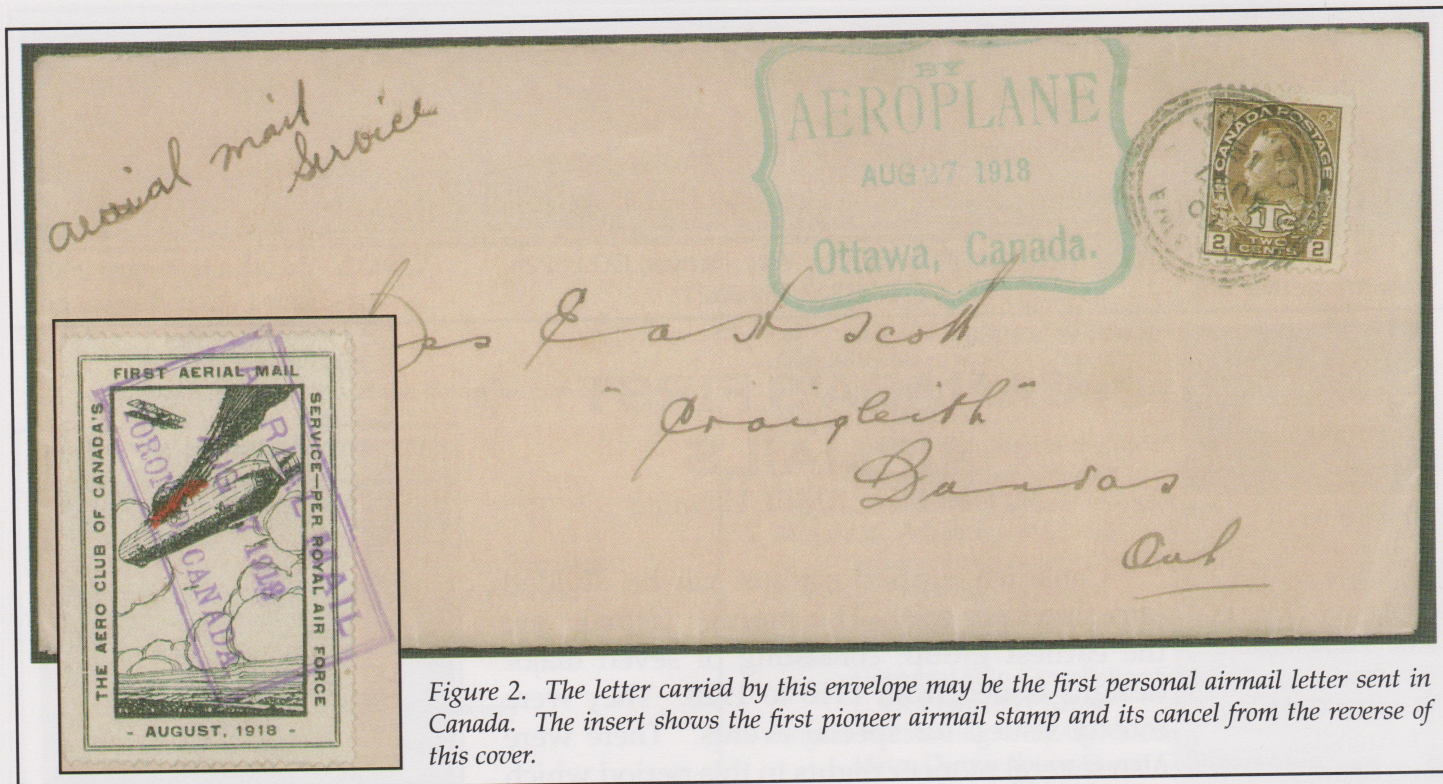 aerial mail
Service
BY
AEROPLANE
AUG 27 1918
Ottawa, Canada.
CANADA POSTAGE
1Tc
2 TWO CENTS 2
East Scott
"Craigleith"
Dundas
Ont
FIRST AERIAL MAIL
THE AERO CLUB OF CANADA'S
SERVICE—PER ROYAL AIR FORCE
- AUGUST, 1918 -
AERIAL MAIL
AUG 27 1918
TORONTO, CANADA
Figure 2. The letter carried by this envelope may be the first personal airmail letter sent in
Canada. The insert shows the first pioneer airmail stamp and its cancel from the reverse of
this cover.